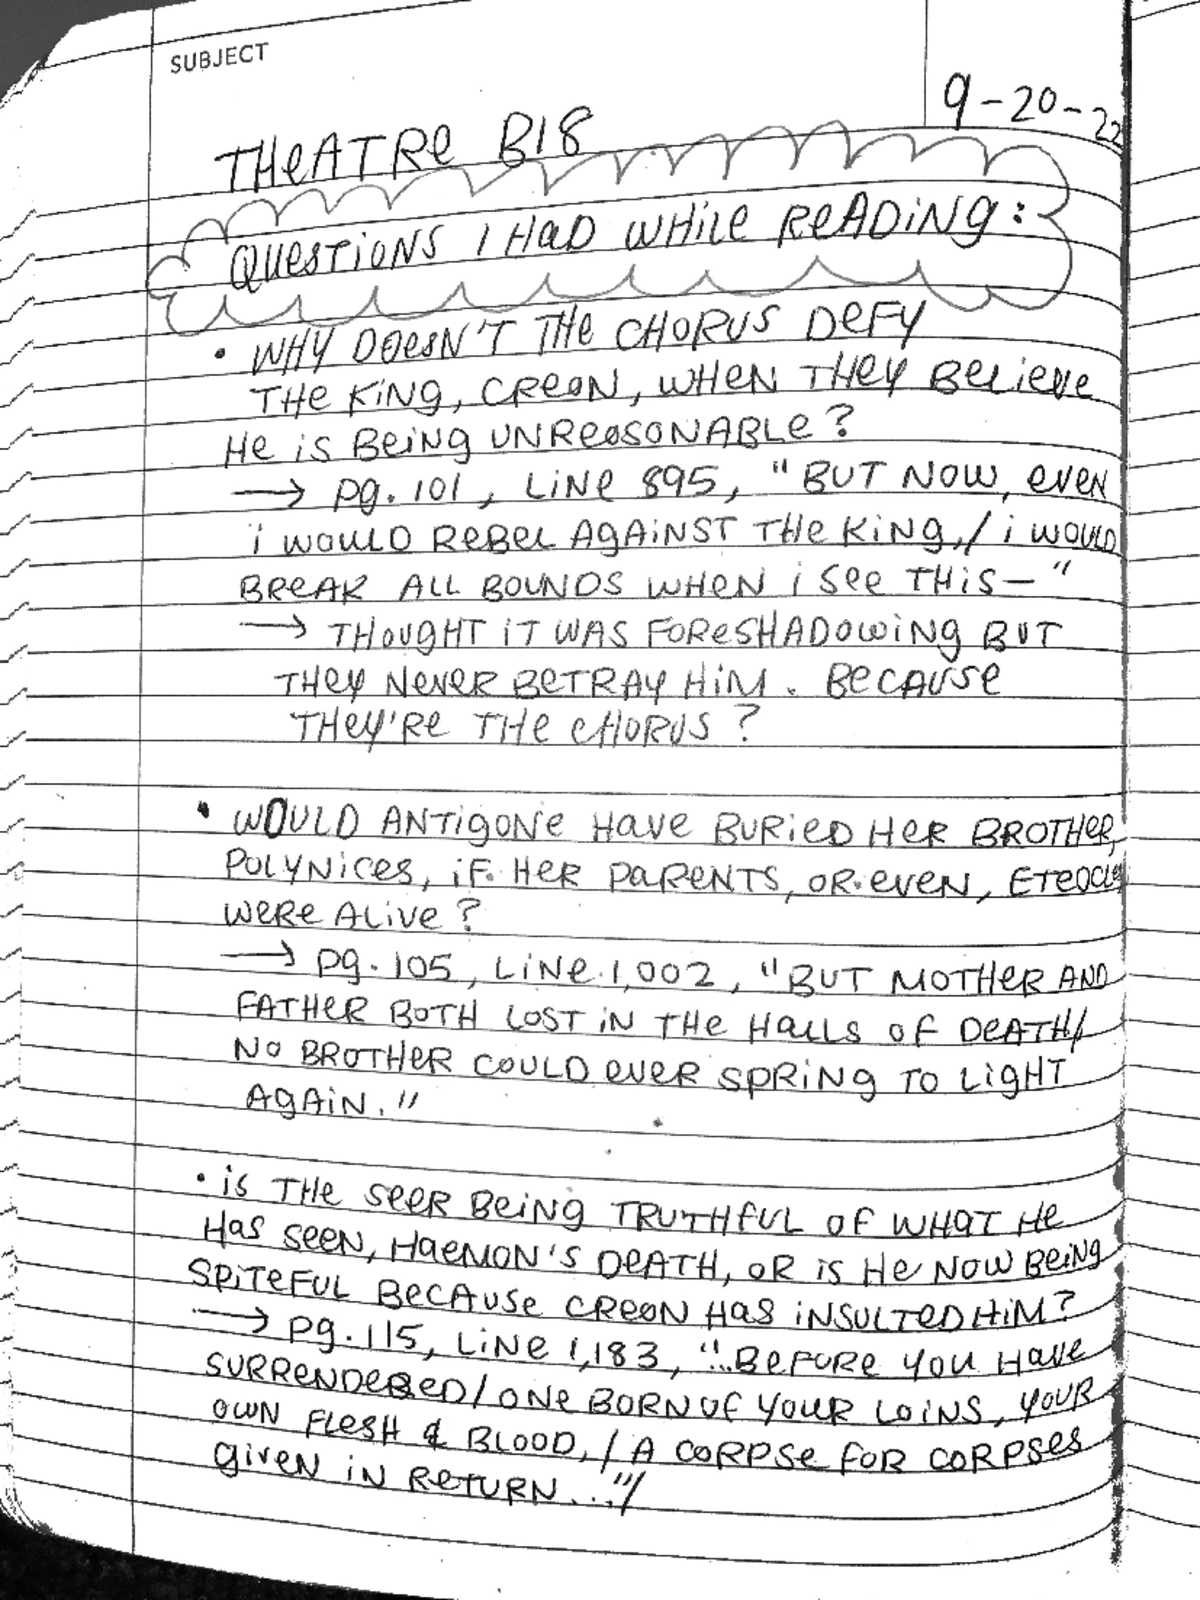 SUBJECT
9-20-22
THEATRE B18
QUESTIONS I HAD WHILE READING:
• WHY DOESN'T THE CHORUS DEFY
THE KING, CREON, WHEN THEY BELIEVE
HE IS BEING UNREASONABLE?
→ pg. 101, LINE 895, "BUT NOW, EVEN
I WOULD REBEL AGAINST THE KING,/ I WOULD
BREAK ALL BOUNDS WHEN I SEE THIS—"
→ THOUGHT IT WAS FORESHADOWING BUT
THEY NEVER BETRAY HIM. BECAUSE
THEY'RE THE CHORUS?
• WOULD ANTIGONE HAVE BURIED HER BROTHER,
POLYNICES, IF HER PARENTS, OR EVEN, ETEOCLES
WERE ALIVE?
→ pg. 105, LINE 1,002, "BUT MOTHER AND
FATHER BOTH LOST IN THE HALLS OF DEATH/
NO BROTHER COULD EVER SPRING TO LIGHT
AGAIN."
• IS THE SEER BEING TRUTHFUL OF WHAT HE
HAS SEEN, HAEMON'S DEATH, OR IS HE NOW BEING
SPITEFUL BECAUSE CREON HAS INSULTED HIM?
→ pg. 115, LINE 1,183, "...BEFORE YOU HAVE
SURRENDERED/ ONE BORN OF YOUR LOINS, YOUR
OWN FLESH & BLOOD,/ A CORPSE FOR CORPSES
GIVEN IN RETURN..."/